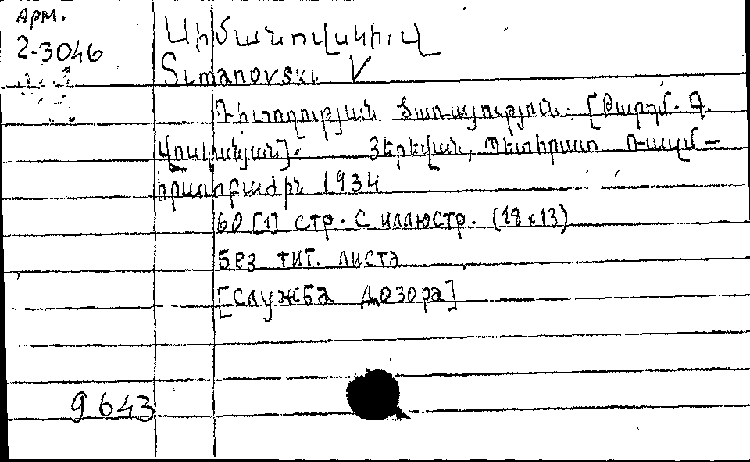 Арм.
2-3046
Սիմանովսկիվ
Simanovski V
Դիտողության ծառայություն. [Թարգմ. Գ.
Երեվան, Պետհրատ Ռազմ—
հրատ բաժին 1934
60 [1] стр. с иллюстр. (18x13)
Без тит. листа
[Служба дозора]
9643